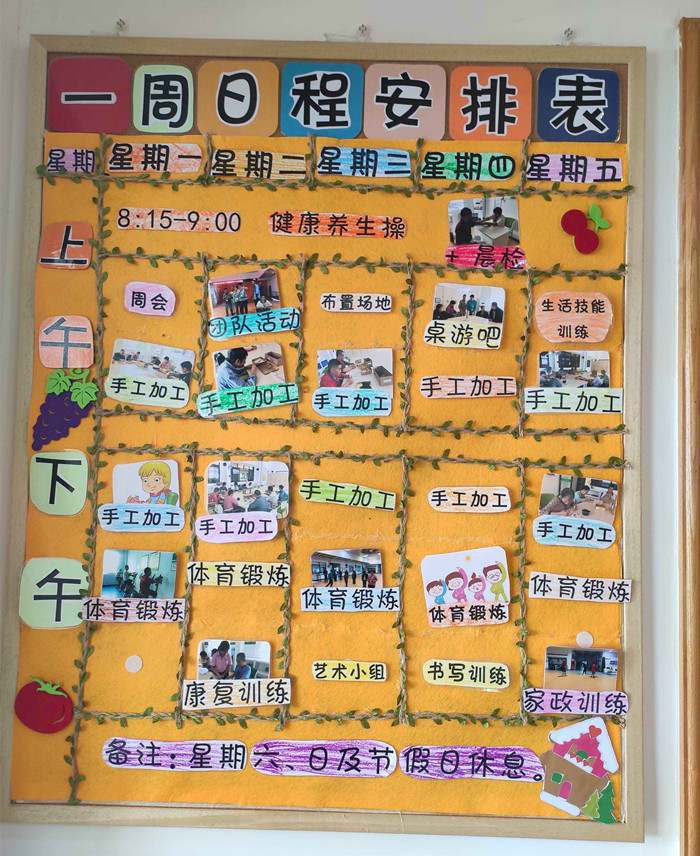 一周日程安排表
星期 星期一 星期二 星期三 星期四 星期五
上午
8:15-9:00 健康养生操 + 晨检
周会 团队活动 布置场地 桌游吧 生活技能
训练
手工加工 手工加工 手工加工 手工加工 手工加工
下午
手工加工 手工加工 手工加工 手工加工 手工加工
体育锻炼 体育锻炼 体育锻炼 体育锻炼 体育锻炼
康复训练 艺术小组 书写训练 家政训练
备注:星期六、日及节假日休息。